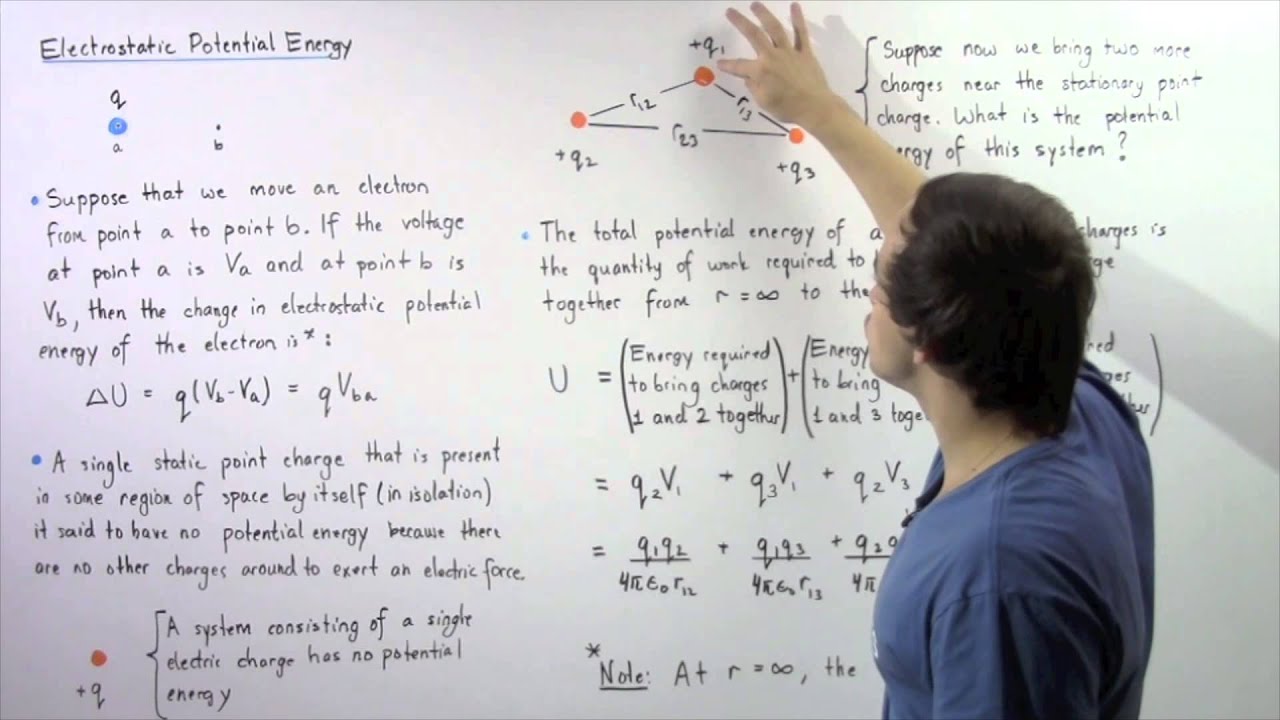 Electrostatic Potential Energy
q
a
b
• Suppose that we move an electron
from point a to point b. If the voltage
at point a is Va and at point b is
Vb, then the change in electrostatic potential
energy of the electron is*:
ΔU = q(Vb-Va) = qVba
• A single static point charge that is present
in some region of space by itself (in isolation)
it said to have no potential energy because there
are no other charges around to exert an electric force.
+q
A system consisting of a single
electric charge has no potential
energy
+q1
r12
r13
r23
+q2
+q3
Suppose now we bring two more
charges near the stationary point
charge. What is the potential
of this system?
• The total potential energy of a charges is
the quantity of work required to
together from r = ∞ to the
U = (Energy required + (Energy
to bring charges to bring
1 and 2 together) 1 and 3
= q2V1 + q3V1 + q2V3
= q1q2/4πϵ0r12 + q1q3/4πϵ0r13 + q2q/4π
* Note: At r = ∞, the